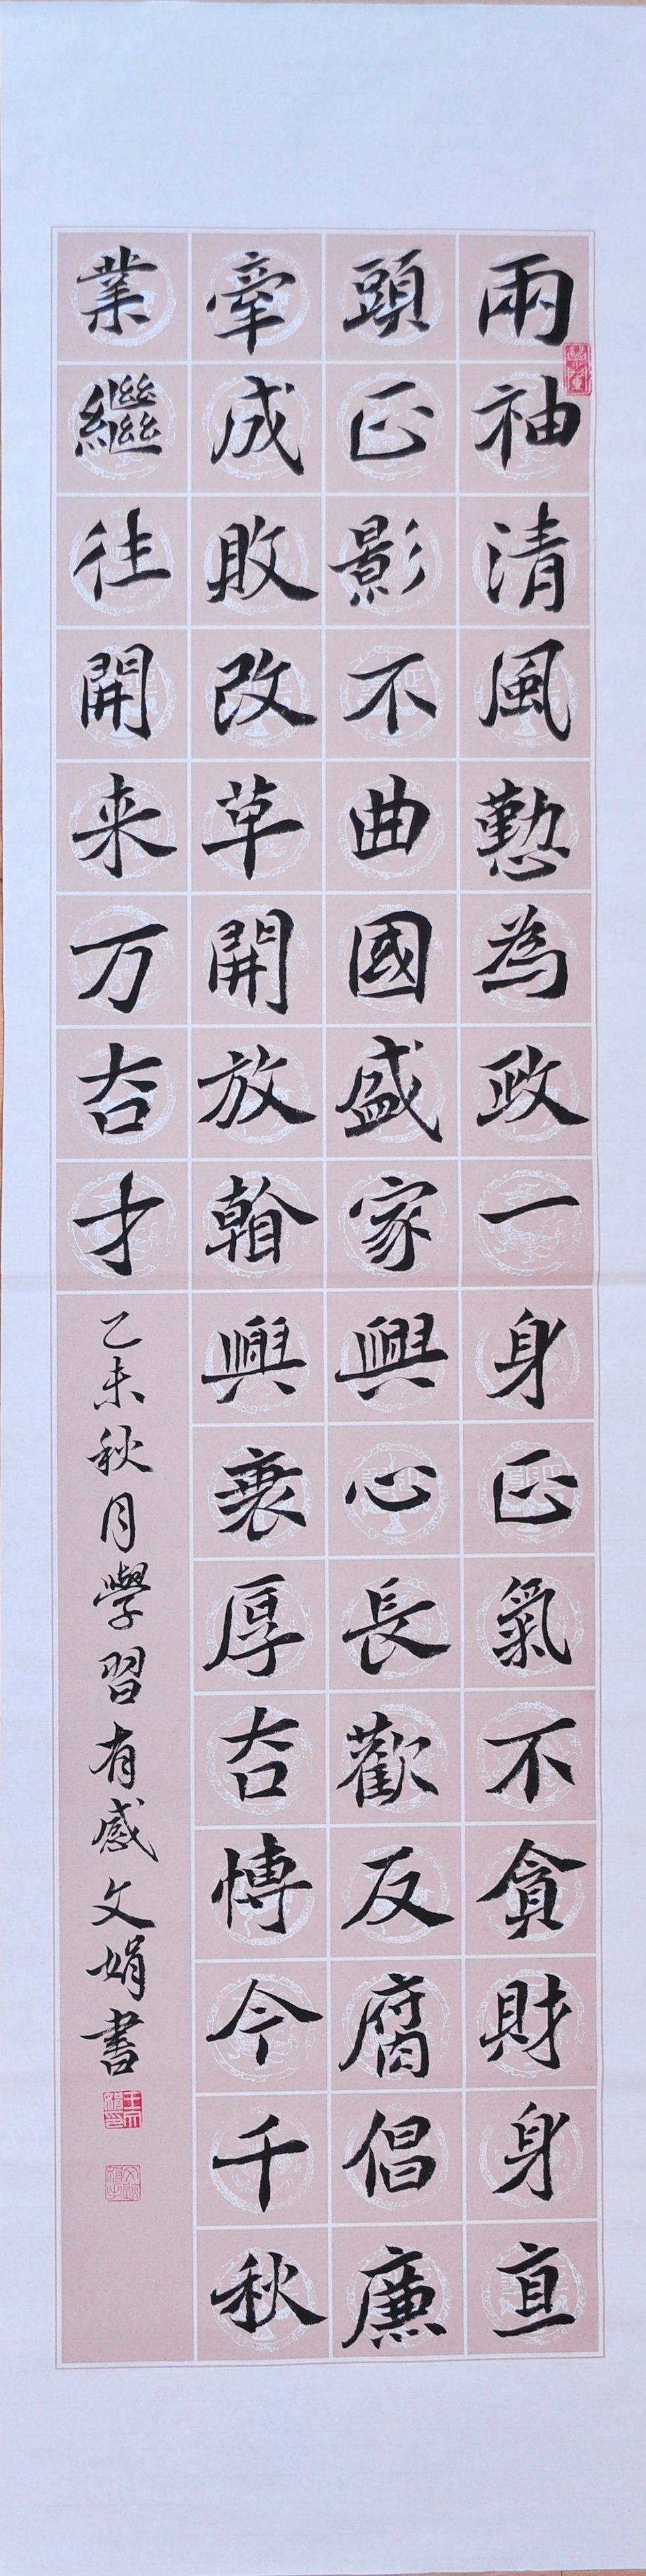 兩袖清風懃為政一身正氣不貪財身直
頭正影不曲國盛家興心長歡反腐倡廉
牽成敗改草開放翰興衰厚古慱今千秋
業繼往開来万古才
乙未秋月學習有感文娟書